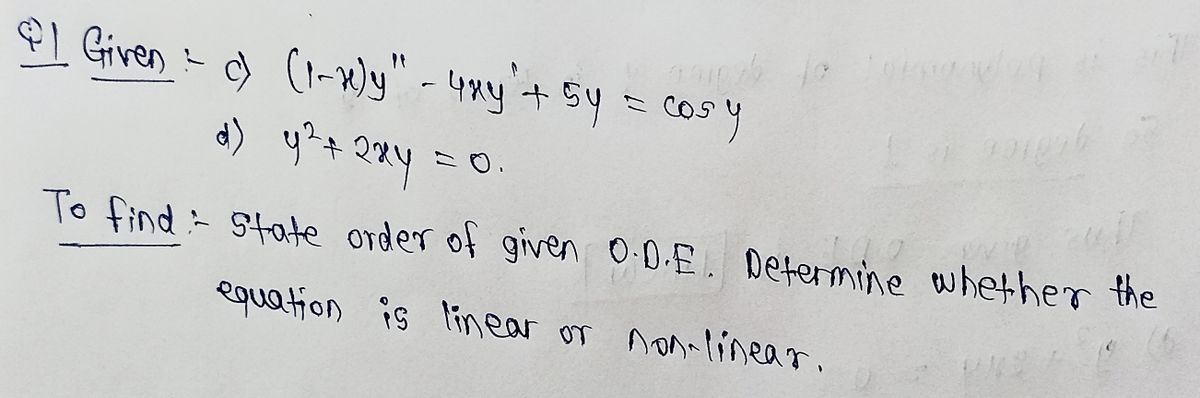 Q1 Given :- c) (1-x)y" - 4xy' + 5y = cosy
d) y² + 2xy = 0.
To find :- State order of given O.D.E. Determine whether the
equation is linear or non-linear.